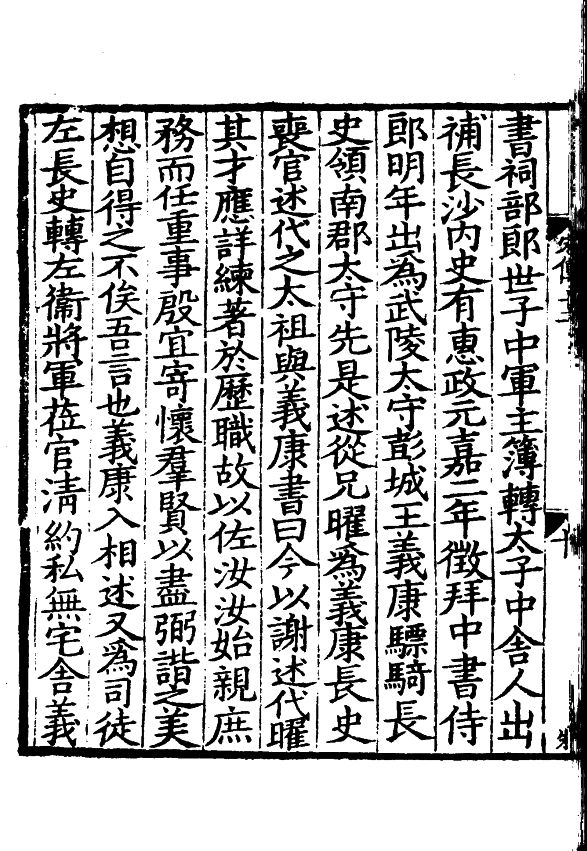 書祠部郎世子中軍主簿轉太子中舎人出
補長沙内史有惠政元嘉二年徴拜中書侍
郎明年出爲武陵太守彭城王義康驃騎長
史領南郡太守先是述從兄曜爲義康長史
喪官述代之太祖與義康書曰今以謝述代曜
其才應詳練著於歷職故以佐汝汝始親庶
務而任重事殷宜寄懷羣賢以盡弼諧之美
想自得之不俟吾言也義康入相述又爲司徒
左長史轉左衞將軍莅官淸約私無宅舎義